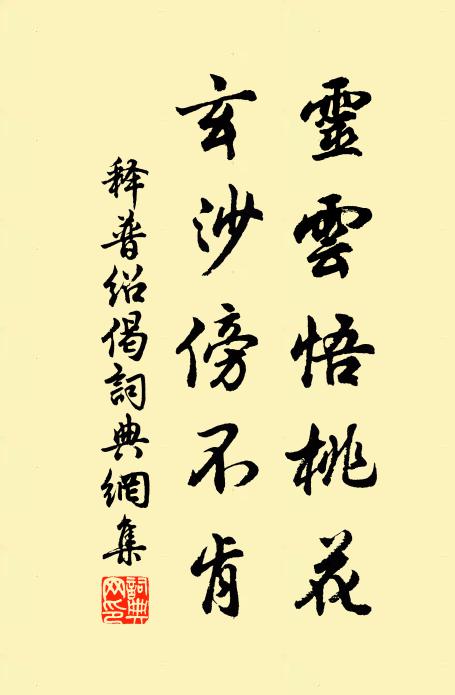 靈雲悟桃花
玄沙傍不肯
释普绍偈詞典網集
詞典网印